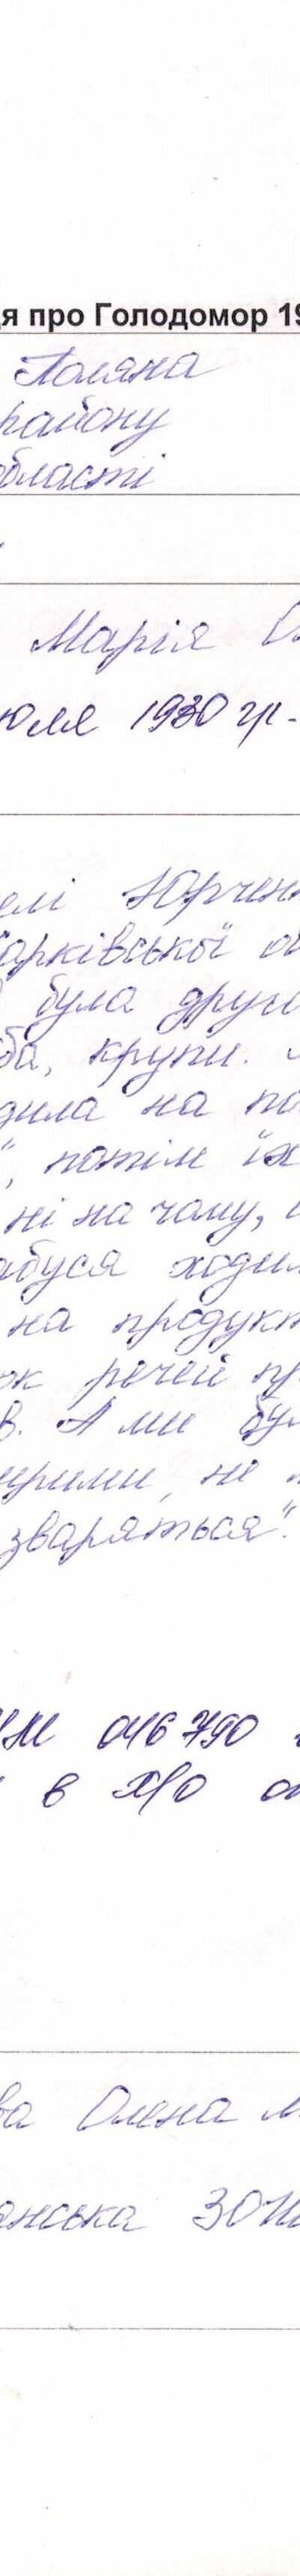 я про Голодомор 19
Поляна
району
області
Марія
юля 1930 гр.
елі Юрчен
Харківської о
була друг
ба, крупи.
дила на по
", потім їх
ні на чому,
абуся ходил
на продукт
ок речей пр
в. А ми бул
щрими, не
зваряться".
НМ 046790
в х/о
ва Олена М
анська ЗОШ